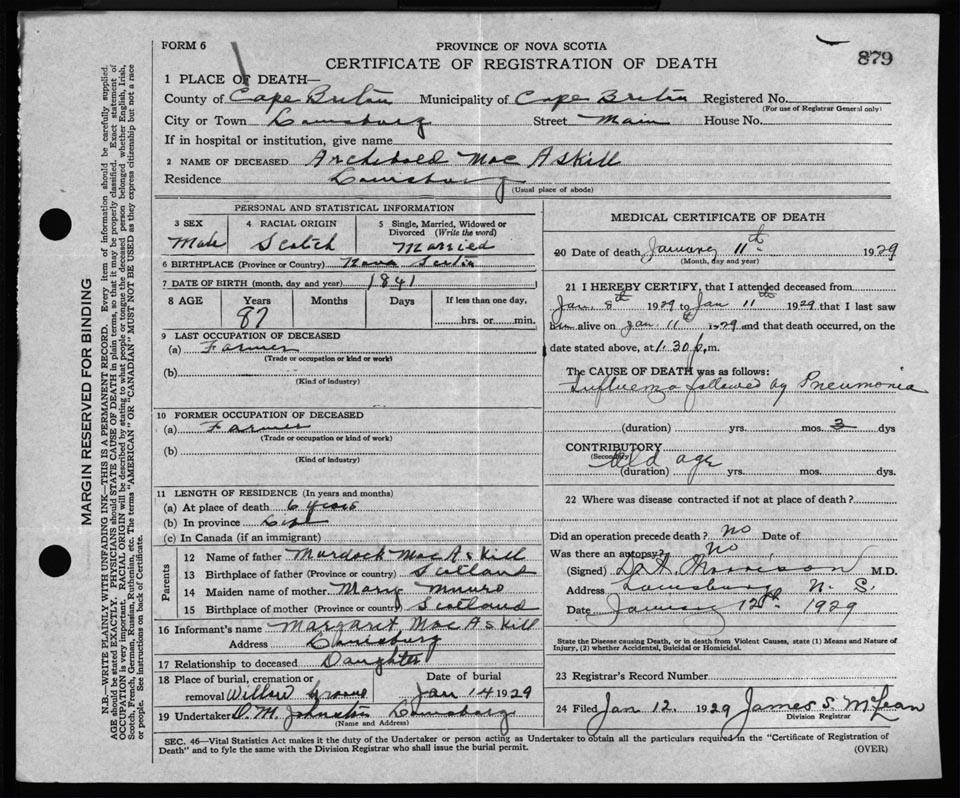 FORM 6
PROVINCE OF NOVA SCOTIA
CERTIFICATE OF REGISTRATION OF DEATH
879
1 PLACE OF DEATH—
County of Cape Breton Municipality of Cape Breton Registered No.
(For use of Registrar General only)
City or Town Louisburg Street Main House No.
If in hospital or institution, give name
2 NAME OF DECEASED Archibald MacAskill
Residence Louisburg
(Usual place of abode)
PERSONAL AND STATISTICAL INFORMATION
3 SEX 4 RACIAL ORIGIN 5 Single, Married, Widowed or Divorced (Write the word)
Male Scotch Married
6 BIRTHPLACE (Province or Country) Nova Scotia
7 DATE OF BIRTH (month, day and year) 1841
8 AGE Years Months Days If less than one day,
87 hrs. or min.
9 LAST OCCUPATION OF DECEASED
(a) Farmer
(Trade or occupation or kind of work)
(b)
(Kind of industry)
10 FORMER OCCUPATION OF DECEASED
(a) Farmer
(Trade or occupation or kind of work)
(b)
(Kind of industry)
11 LENGTH OF RESIDENCE (In years and months)
(a) At place of death 6 years
(b) In province Life
(c) In Canada (if an immigrant)
Parents
12 Name of father Murdock MacAskill
13 Birthplace of father (Province or country) Scotland
14 Maiden name of mother Mary Munro
15 Birthplace of mother (Province or country) Scotland
16 Informant's name Margaret MacAskill
Address Louisburg
17 Relationship to deceased Daughter
18 Place of burial, cremation or Date of burial
removal Willow Grove Jan 14 1929
19 Undertaker D. M. Johnston Louisburg
(Name and Address)
MEDICAL CERTIFICATE OF DEATH
20 Date of death January 11th 1929
(Month, day and year)
21 I HEREBY CERTIFY, that I attended deceased from
Jan. 8th 1929 to Jan 11th 1929 that I last saw
him alive on Jan. 11th 1929 and that death occurred, on the
date stated above, at 1.30 p.m.
The CAUSE OF DEATH was as follows:
Influenza followed by Pneumonia
(duration) yrs. mos. 3 dys
CONTRIBUTORY
(Secondary) Old age
(duration) yrs. mos. dys.
22 Where was disease contracted if not at place of death?
Did an operation precede death? no Date of
Was there an autopsy? no
(Signed) Morrison M.D.
Address Louisburg N. S.
Date January 12th 1929
State the Disease causing Death, or in death from Violent Causes, state (1) Means and Nature of
Injury, (2) whether Accidental, Suicidal or Homicidal.
23 Registrar's Record Number
24 Filed Jan 12. 1929 James S. McLean
Division Registrar
SEC. 46—Vital Statistics Act makes it the duty of the Undertaker or person acting as Undertaker to obtain all the particulars required in the "Certificate of Registration of
Death" and to fyle the same with the Division Registrar who shall issue the burial permit.
(OVER)
MARGIN RESERVED FOR BINDING
N.B.—WRITE PLAINLY WITH UNFADING INK—THIS IS A PERMANENT RECORD. Every item of information should be carefully supplied.
AGE should be stated EXACTLY. PHYSICIANS should STATE CAUSE OF DEATH in plain terms, so that it may be properly classified. Exact statement of
OCCUPATION is very important. RACIAL ORIGIN will be described by stating to what people or tongue the deceased person belonged whether English, Irish,
Scotch, French, German, Russian, Ruthenian, etc. The terms "AMERICAN" OR "CANADIAN" MUST NOT BE USED as they express citizenship but not a race
or people. See instructions on back of Certificate.